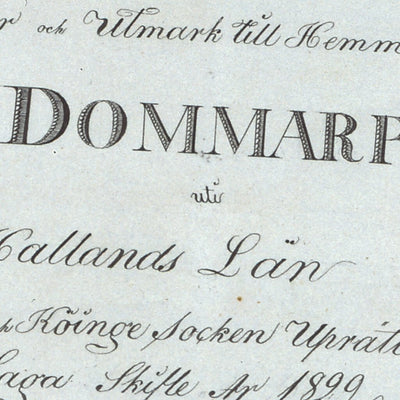 r och Utmark till Hemm
DOMMARP
uti
Hallands Län
ch Köinge Socken Uprätt
Laga Skifte År 1899